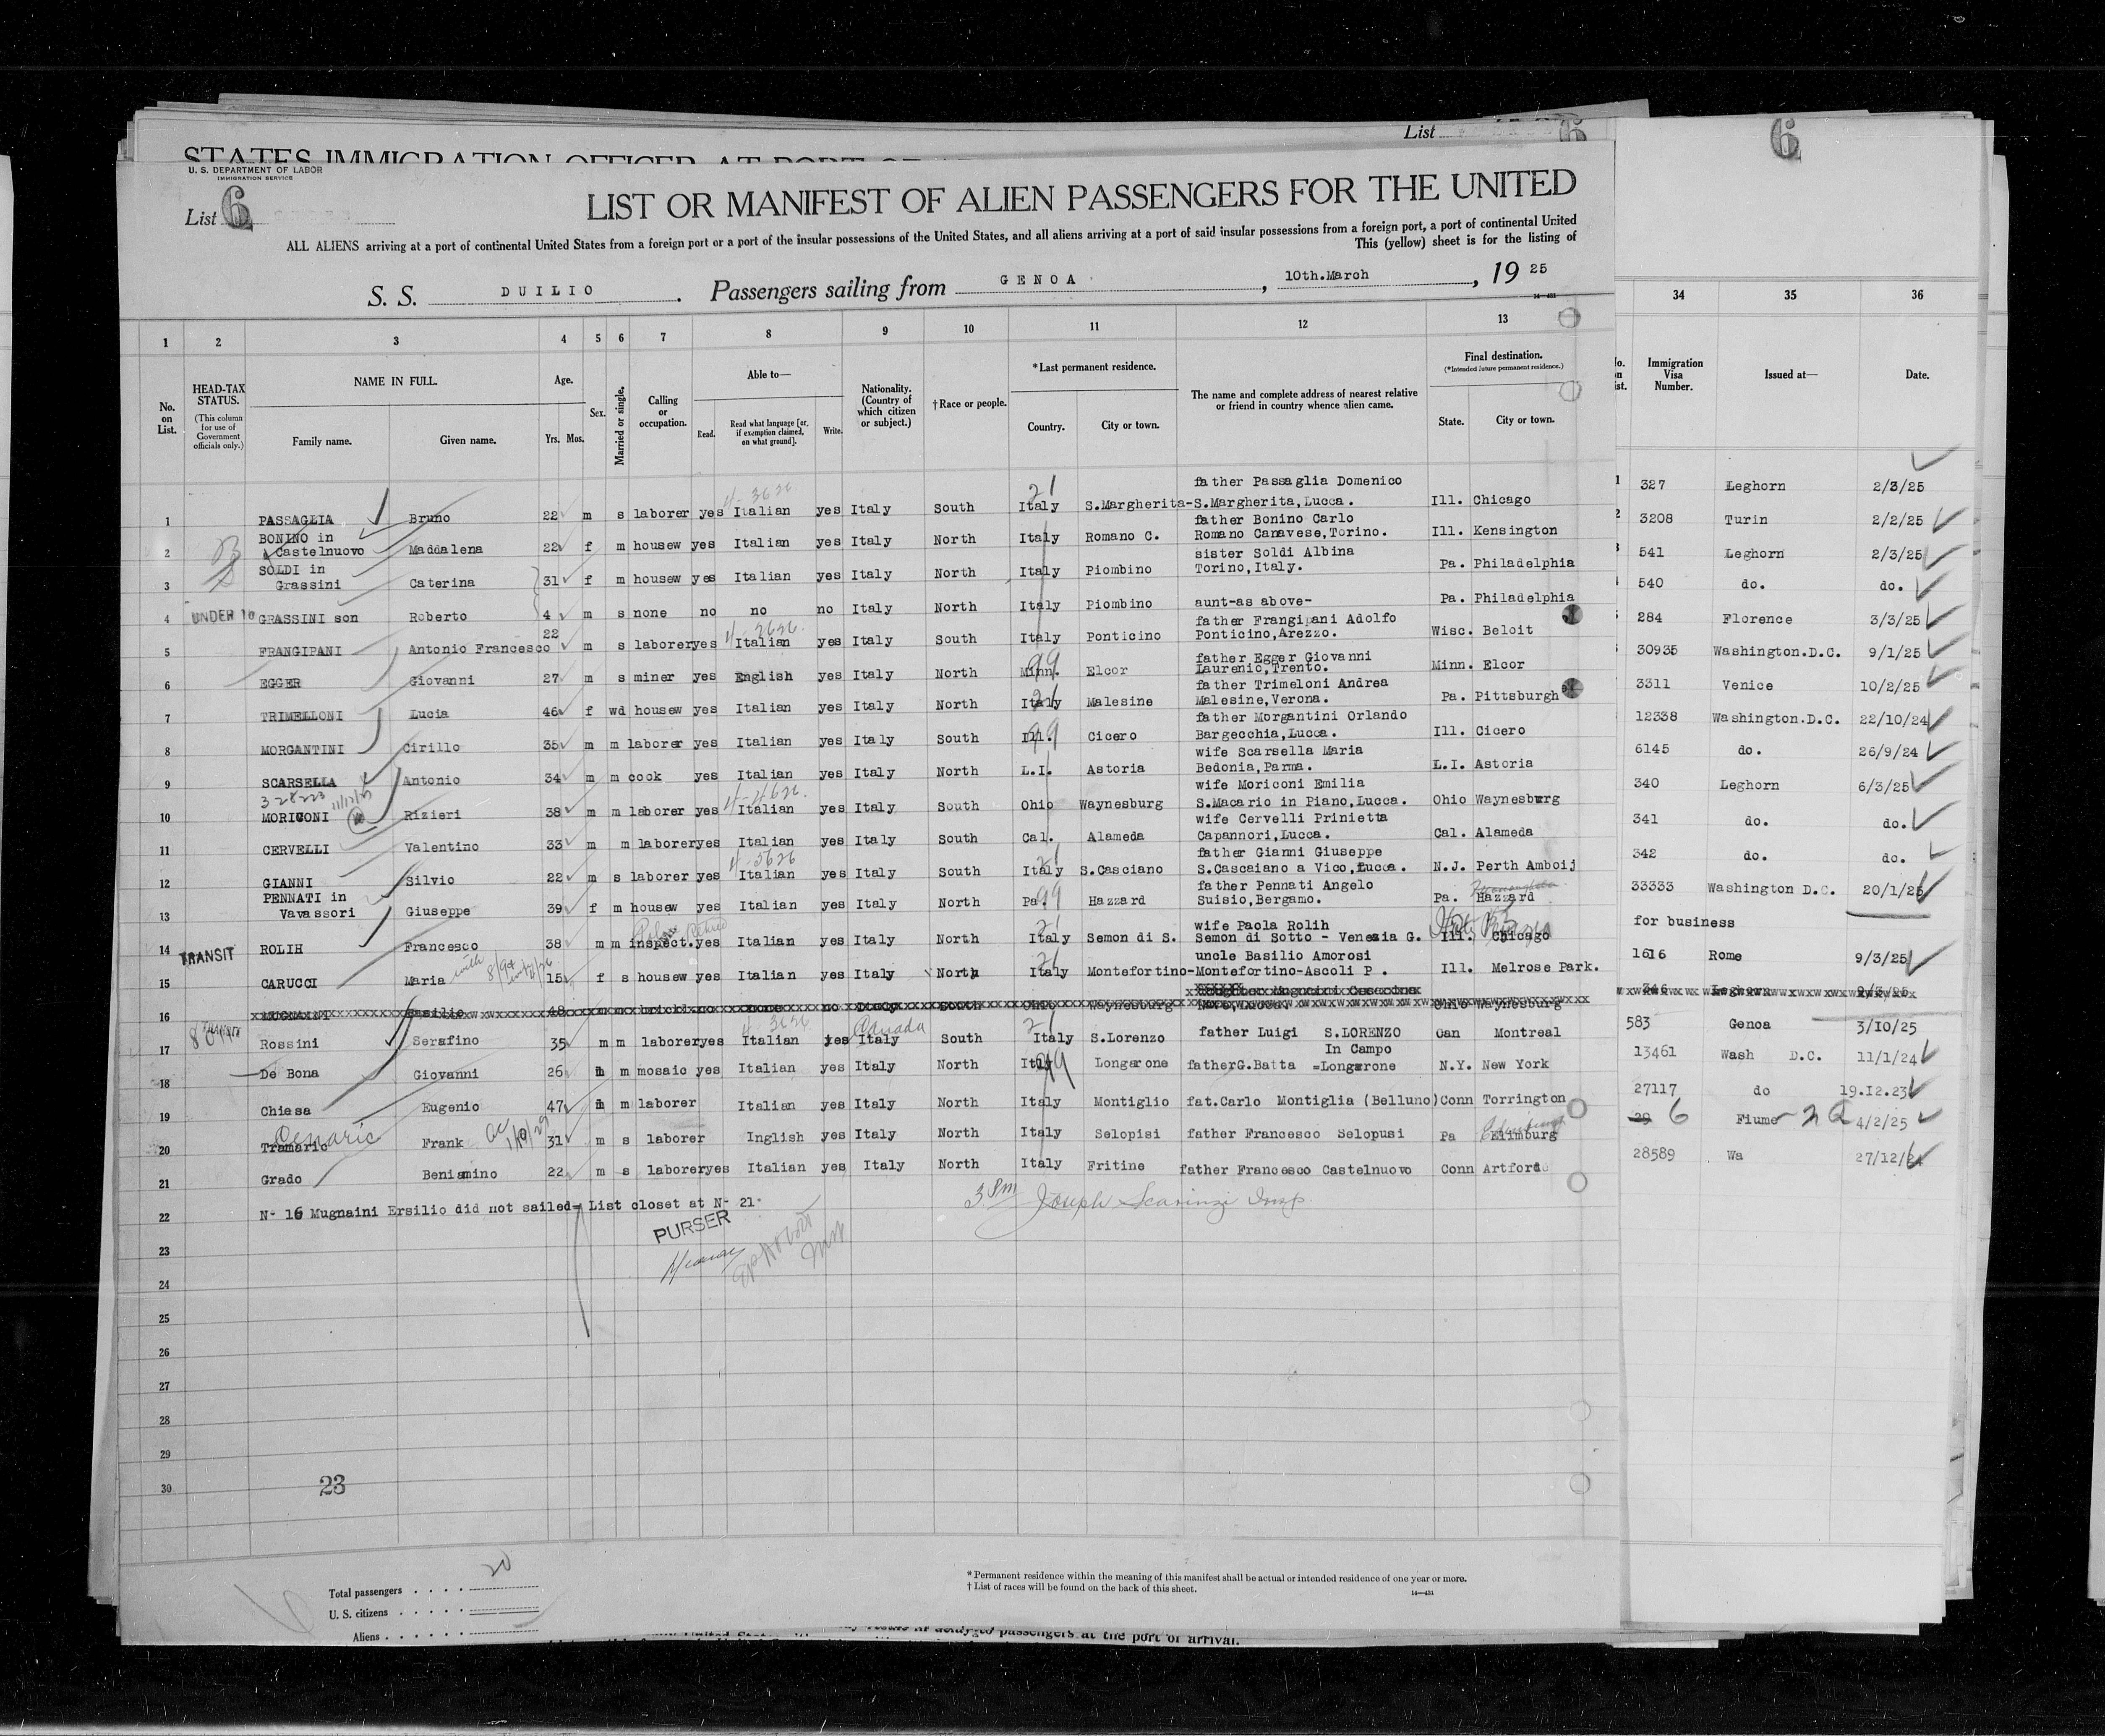 List 6
STATES IMMIGRATION OFFICER AT PORT OF
U. S. DEPARTMENT OF LABOR
IMMIGRATION SERVICE
List 6
6
LIST OR MANIFEST OF ALIEN PASSENGERS FOR THE UNITED
ALL ALIENS arriving at a port of continental United States from a foreign port or a port of the insular possessions of the United States, and all aliens arriving at a port of said insular possessions from a foreign port, a port of continental United
This (yellow) sheet is for the listing of
S. S. DUILIO . Passengers sailing from GENOA , 10th.March , 19 25
14—431
1 2 3 4 5 6 7 8 9 10 11 12 13 34 35 36
No. on List.
HEAD-TAX STATUS.
(This column for use of Government officials only.)
NAME IN FULL.
Family name. Given name.
Age.
Yrs. Mos.
Sex.
Married or single.
Calling or occupation.
Able to—
Read. Read what language [or, if exemption claimed, on what ground]. Write.
Nationality. (Country of which citizen or subject.)
†Race or people.
*Last permanent residence.
Country. City or town.
The name and complete address of nearest relative or friend in country whence alien came.
Final destination.
(*Intended future permanent residence.)
State. City or town.
Immigration Visa Number.
Issued at—
Date.
father Passaglia Domenico
1 PASSAGLIA Bruno 22 m s laborer yes Italian yes Italy South Italy S.Margherita-S.Margherita,Lucca. Ill. Chicago 327 Leghorn 2/3/25
BONINO in father Bonino Carlo
2 Castelnuovo Maddalena 22 f m housew yes Italian yes Italy North Italy Romano C. Romano Canavese,Torino. Ill. Kensington 3208 Turin 2/2/25
SOLDI in sister Soldi Albina
3 Grassini Caterina 31 f m housew yes Italian yes Italy North Italy Piombino Torino,Italy. Pa. Philadelphia 541 Leghorn 2/3/25
4 UNDER 10 GRASSINI son Roberto 4 m s none no no no Italy North Italy Piombino aunt-as above- Pa. Philadelphia 540 do. do.
father Frangipani Adolfo
5 FRANGIPANI Antonio Francesco 22 m s laborer yes Italian yes Italy South Italy Ponticino Ponticino,Arezzo. Wisc. Beloit 284 Florence 3/3/25
father Egger Giovanni
6 EGGER Giovanni 27 m s miner yes English yes Italy North Minn. Elcor Laurenic,Trento. Minn. Elcor 30935 Washington.D.C. 9/1/25
father Trimeloni Andrea
7 TRIMELLONI Lucia 46 f wd housew yes Italian yes Italy North Italy Malesine Malesine,Verona. Pa. Pittsburgh 3311 Venice 10/2/25
father Morgantini Orlando
8 MORGANTINI Cirillo 35 m m laborer yes Italian yes Italy South Ill. Cicero Bargecchia,Lucca. Ill. Cicero 12338 Washington.D.C. 22/10/24
wife Scarsella Maria
9 SCARSELLA Antonio 34 m m cook yes Italian yes Italy North L.I. Astoria Bedonia,Parma. L.I. Astoria 6145 do. 26/9/24
328223 wife Moriconi Emilia
10 MORICONI Rizieri 38 m m laborer yes Italian yes Italy South Ohio Waynesburg S.Macario in Piano,Lucca. Ohio Waynesburg 340 Leghorn 6/3/25
wife Cervelli Prinietta
11 CERVELLI Valentino 33 m m laborer yes Italian yes Italy South Cal. Alameda Capannori,Lucca. Cal. Alameda 341 do. do.
father Gianni Giuseppe
12 GIANNI Silvio 22 m s laborer yes Italian yes Italy South Italy S.Casciano S.Cascaiano a Vico,Lucca. N.J. Perth Amboij 342 do. do.
PENNATI in father Pennati Angelo
13 Vavassori Giuseppe 39 f m housew yes Italian yes Italy North Pa. Hazzard Suisio,Bergamo. Pa. Hazzard 33333 Washington D.C. 20/1/25
wife Paola Rolih
14 TRANSIT ROLIH Francesco 38 m m inspect. yes Italian yes Italy North Italy Semon di S. Semon di Sotto - Venezia G. Ill. Chicago for business
uncle Basilio Amorosi
15 CARUCCI Maria 15 f s housew yes Italian yes Italy North Italy Montefortino-Montefortino-Ascoli P . Ill. Melrose Park. 1616 Rome 9/3/25
16 MUGNAINI Ersilio 48 m m brickl no none no Italy South Ohio Waynesburg Ohio Waynesburg 346 Leghorn
Canada
17 Rossini Serafino 35 m m laborer yes Italian yes Italy South Italy S.Lorenzo father Luigi S.LORENZO Can Montreal 583 Genoa 3/10/25
In Campo
18 De Bona Giovanni 26 m m mosaic yes Italian yes Italy North Italy Longarone fatherG.Batta =Longarone N.Y. New York 13461 Wash D.C. 11/1/24
19 Chiesa Eugenio 47 m m laborer Italian yes Italy North Italy Montiglio fat.Carlo Montiglia (Belluno) Conn Torrington 27117 do 19.I2.23
20 Tramaric Frank 31 m s laborer Inglish yes Italy North Italy Selopisi father Francesco Selopusi Pa Elimburg 29 6 Fiume 4/2/25
21 Grado Beniamino 22 m s laborer yes Italian yes Italy North Italy Fritine father Francesco Castelnuovo Conn Artford 28589 Wa 27/12/24
22 N- 16 Mugnaini Ersilio did not sailed- List closet at N- 21-
3 Pm Joseph Scarinzi Insp.
PURSER
23
24
25
26
27
28
29
30
23
Total passengers . . . . 20
U. S. citizens . . . . .
Aliens . . . . . .
* Permanent residence within the meaning of this manifest shall be actual or intended residence of one year or more.
† List of races will be found on the back of this sheet.
14—431
to passengers at the port of arrival.